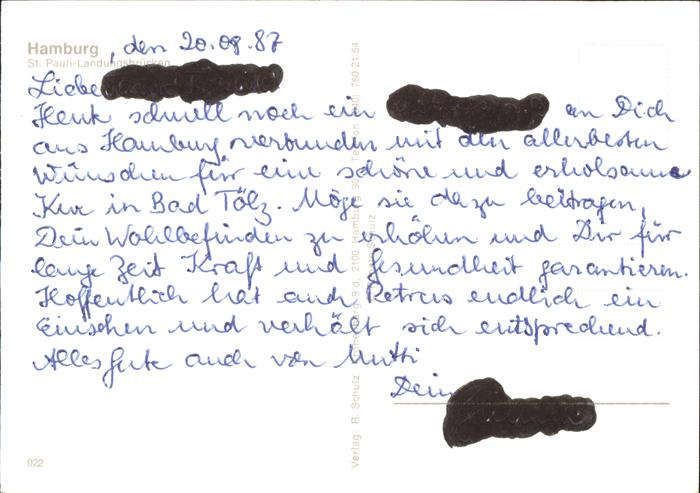 Hamburg, den 20.09.87
St. Pauli-Landungsbrücken
Liebe
Heut schnell noch ein an Dich
aus Hamburg verbunden mit den allerbesten
Wünschen für eine schöne und erholsame
Kur in Bad Tölz. Möge sie dazu beitragen,
Dein Wohlbefinden zu erhöhen und Dir für
lange Zeit Kraft und Gesundheit garantieren.
Hoffentlich hat auch Petrus endlich ein
Einsehen und verhält sich entsprechend.
Alles Gute auch von Mutti
Dein
022
Verlag: R. Schulz, 9 d, 2100 Hamburg 90, Telefon (040) 760 21 54